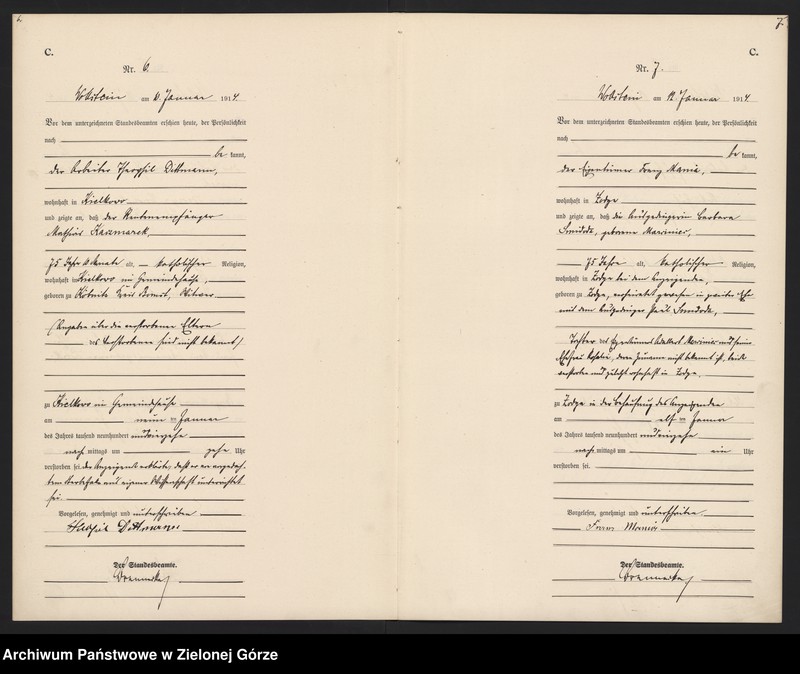 C.
Nr. 6.
Wollstein am 10. Januar 1914.
Vor dem unterzeichneten Standesbeamten erschien heute, der Persönlichkeit
nach
be kannt,
der Arbeiter Theophil Dittmann,
wohnhaft in Kielkowo
und zeigte an, daß der Rentenempfänger
Mathias Kaczmarek,
75 Jahre Monate alt, katholischer Religion,
wohnhaft in Kielkowo im Gemeindehause,
geboren zu Köbnitz Kreis Bomst, Witwer
(Angaben über die verstorbenen Eltern
des Verstorbenen sind nicht bekannt)
zu Kielkowo im Gemeindehause
am neun ten Januar
des Jahres tausend neunhundert undvierzehn
nach mittags um zehn Uhr
verstorben sei. der Anzeigende erklärte, daß er von
dem Sterbefalle aus eigener Wissenschaft unterrichtet
sei
Vorgelesen, genehmigt und unterschrieben
Theofil Dittmann
Der Standesbeamte.
7.
C.
Nr. 7.
Wollstein am 12. Januar 1914.
Vor dem unterzeichneten Standesbeamten erschien heute, der Persönlichkeit
nach
be kannt,
der Eigentümer Franz Mania,
wohnhaft in Lodge
und zeigte an, daß die Ausgedingerin Barbara
Smidoda, geborene Marciniec,
75 Jahre alt, katholischer Religion,
wohnhaft in Lodge bei dem Anzeigenden,
geboren zu Lodge, verheiratet gewesen in zweiter Ehe
mit dem Ausgedinger Paul Smidoda,
Tochter des Eigentümers Adalbert Marciniec und seiner
Ehefrau Rosalie, deren Zuname nicht bekannt ist, beide
verstorben und zuletzt wohnhaft in Lodge,
zu Lodge in der Behausung des Anzeigenden
am elf ten Januar
des Jahres tausend neunhundert undvierzehn
nach mittags um ein Uhr
verstorben sei.
Vorgelesen, genehmigt und unterschrieben
Franz Mania
Der Standesbeamte.
Archiwum Państwowe w Zielonej Górze